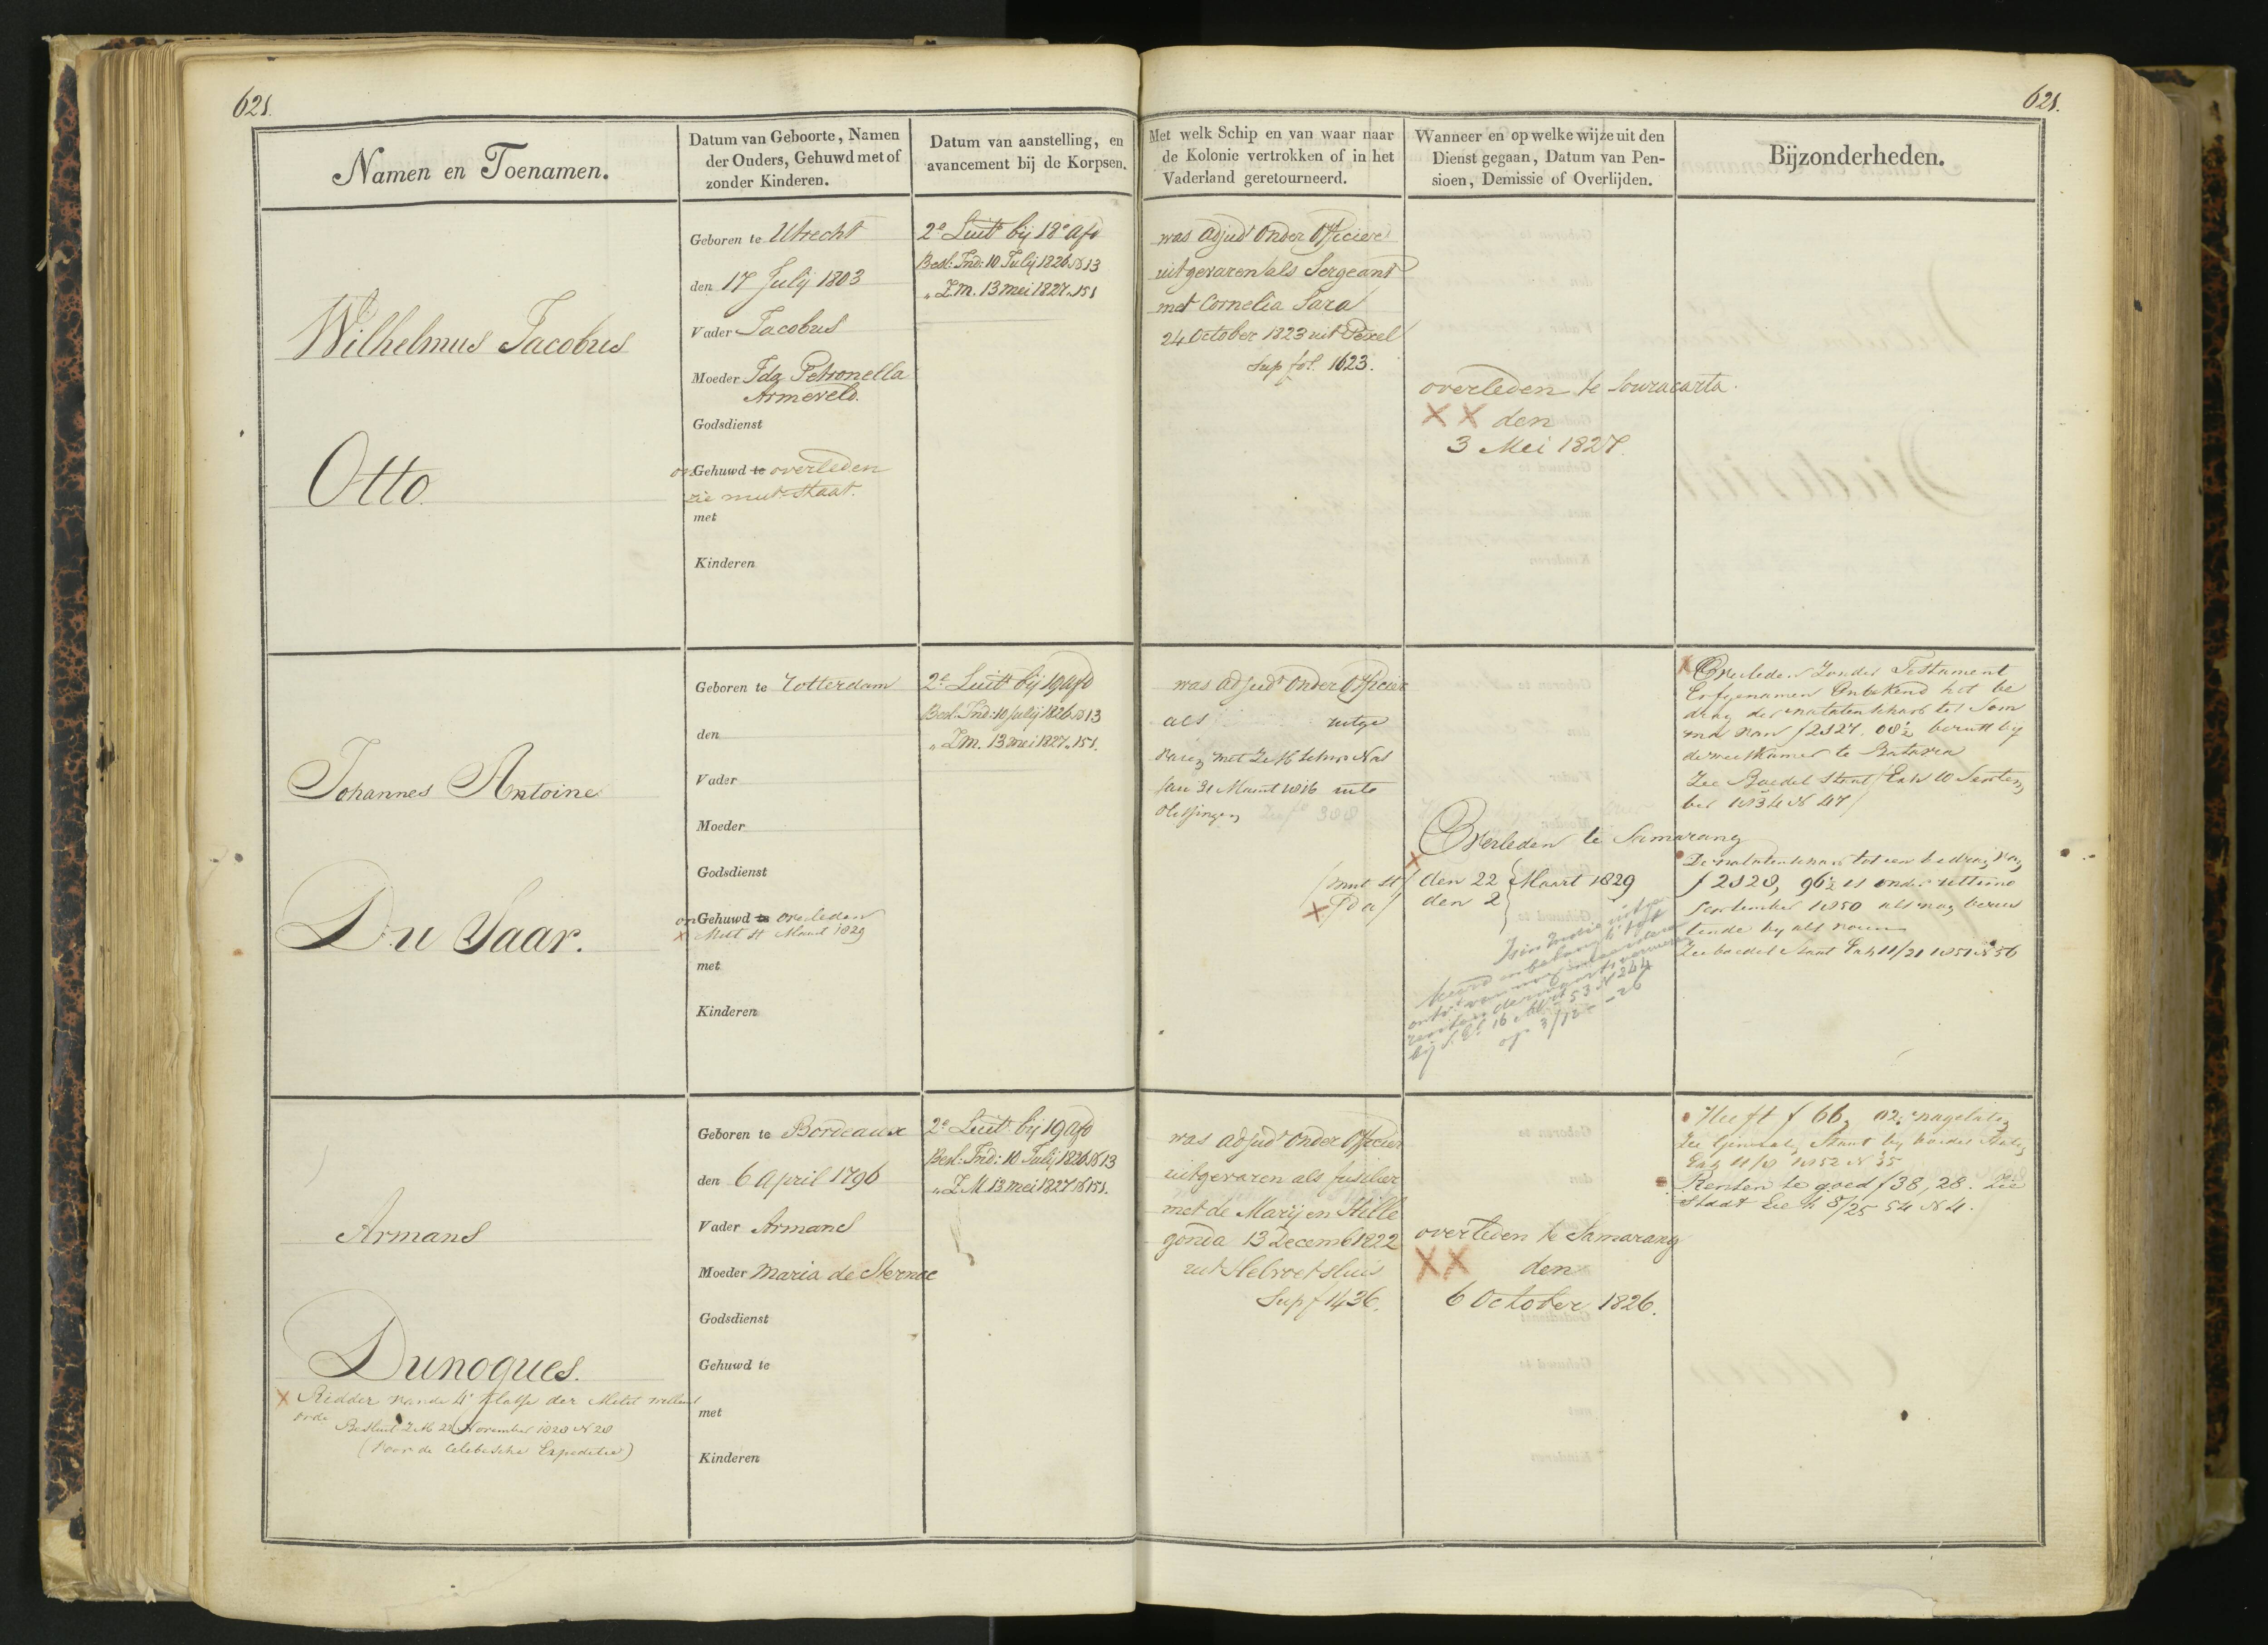 621.
621.
Namen en Toenamen.
Datum van Geboorte, Namen
der Ouders, Gehuwd met of
zonder Kinderen.
Datum van aanstelling, en
avancement bij de Korpsen.
Met welk Schip en van waar naar
de Kolonie vertrokken of in het
Vaderland geretourneerd.
Wanneer en op welke wijze uit den
Dienst gegaan, Datum van Pen-
sioen, Demissie of Overlijden.
Bijzonderheden.
Wilhelmus Jacobus
Otto
Geboren te Utrecht
den 17 Julij 1803
Vader Jacobus
Moeder Ida Petronella
Armeveld.
Godsdienst
Gehuwd te overleden
zie mut. staat.
met
Kinderen
2e Luit bij 18e afd
Besl: Ind: 10 Julij 1826 N 13
" Z.M. 13 mei 1827 " 151
was adjudt onder officier
uitgevaren als Sergeant
met Cornelia Sara
24 October 1823 uit Texel
Sup fol. 1623.
overleden te Souracarta.
XX den
3 Mei 1827.
Johannes Antoine
Du Saar.
Geboren te Rotterdam
den
Vader
Moeder
Godsdienst
Gehuwd te overleden
X Mut st Maart 1829
met
Kinderen
2e Luit bij 19 afd
Besl: Ind: 10 Julij 1826 N 13
" Z.M. 13 mei 1827 " 151.
was adjudt onder officier
als uitge
varen met Z.M. Schip Nas
sau 31 Maart 1816 uit
Vlissingen
Overleden te Samarang
X
(mut st) den 22 Maart 1829
X (Ida) den 2
bij 16 53 N 244
op 3/12 - 26
X Overleden zonder Testament
Erfgenamen onbekend het be
drag der nalatenschap ter som
ma van f 2327.08½ berust bij
de weeskamer te Batavia
Zie Boedel Staat Exh 10 Septem
ber 1834 N 47
De nalatenschap tot een bedrag van
f 2328, 96½ is onder ultimo
September 1850 als nog berus
tende bij als voren
Zie boedel Staat Exh 11/21 1851 N 56
Armand
Dunogues.
X Ridder van de 4e klasse der Milit Willems
orde
Besluit Z M 22 November 1828 N 28
(Voor de Celebesche Expeditie)
Geboren te Bordeaux
den 6 April 1796
Vader Armand
Moeder Maria de Sternac
Godsdienst
Gehuwd te
met
Kinderen
2e Luit bij 19 afd
Besl: Ind: 10 Julij 1826 N 13
" Z.M. 13 mei 1827 N 151.
was adjudt onder officier
uitgevaren als fuselier
met de Marij en Hille
gonda 13 Decemb 1822
uit Helvoetsluis
Sup f 1436.
overleden te Samarang
XX den
6 October 1826.
Heeft f 66, 02 nagelaten
Zie Generale Staat bij boedel Staten
Exh 11/8 1852 N 35
Renten te goed f 38, 28. zie
Staat Exh 8/25 54 N 4.